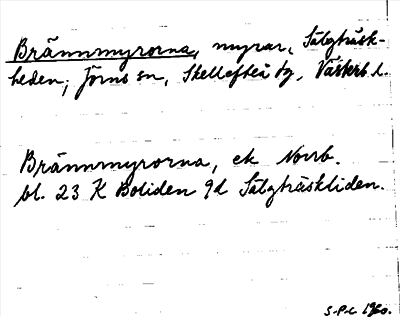 Brännmyrorna, myrar, Sälgträsk-
heden, Jörns sn, Skellefteå tg, Västerb. l.
Brännmyrorna, ek Norrb.
bl. 23 K Boliden 9d Sälgträskliden.
S.P.C. 1960.